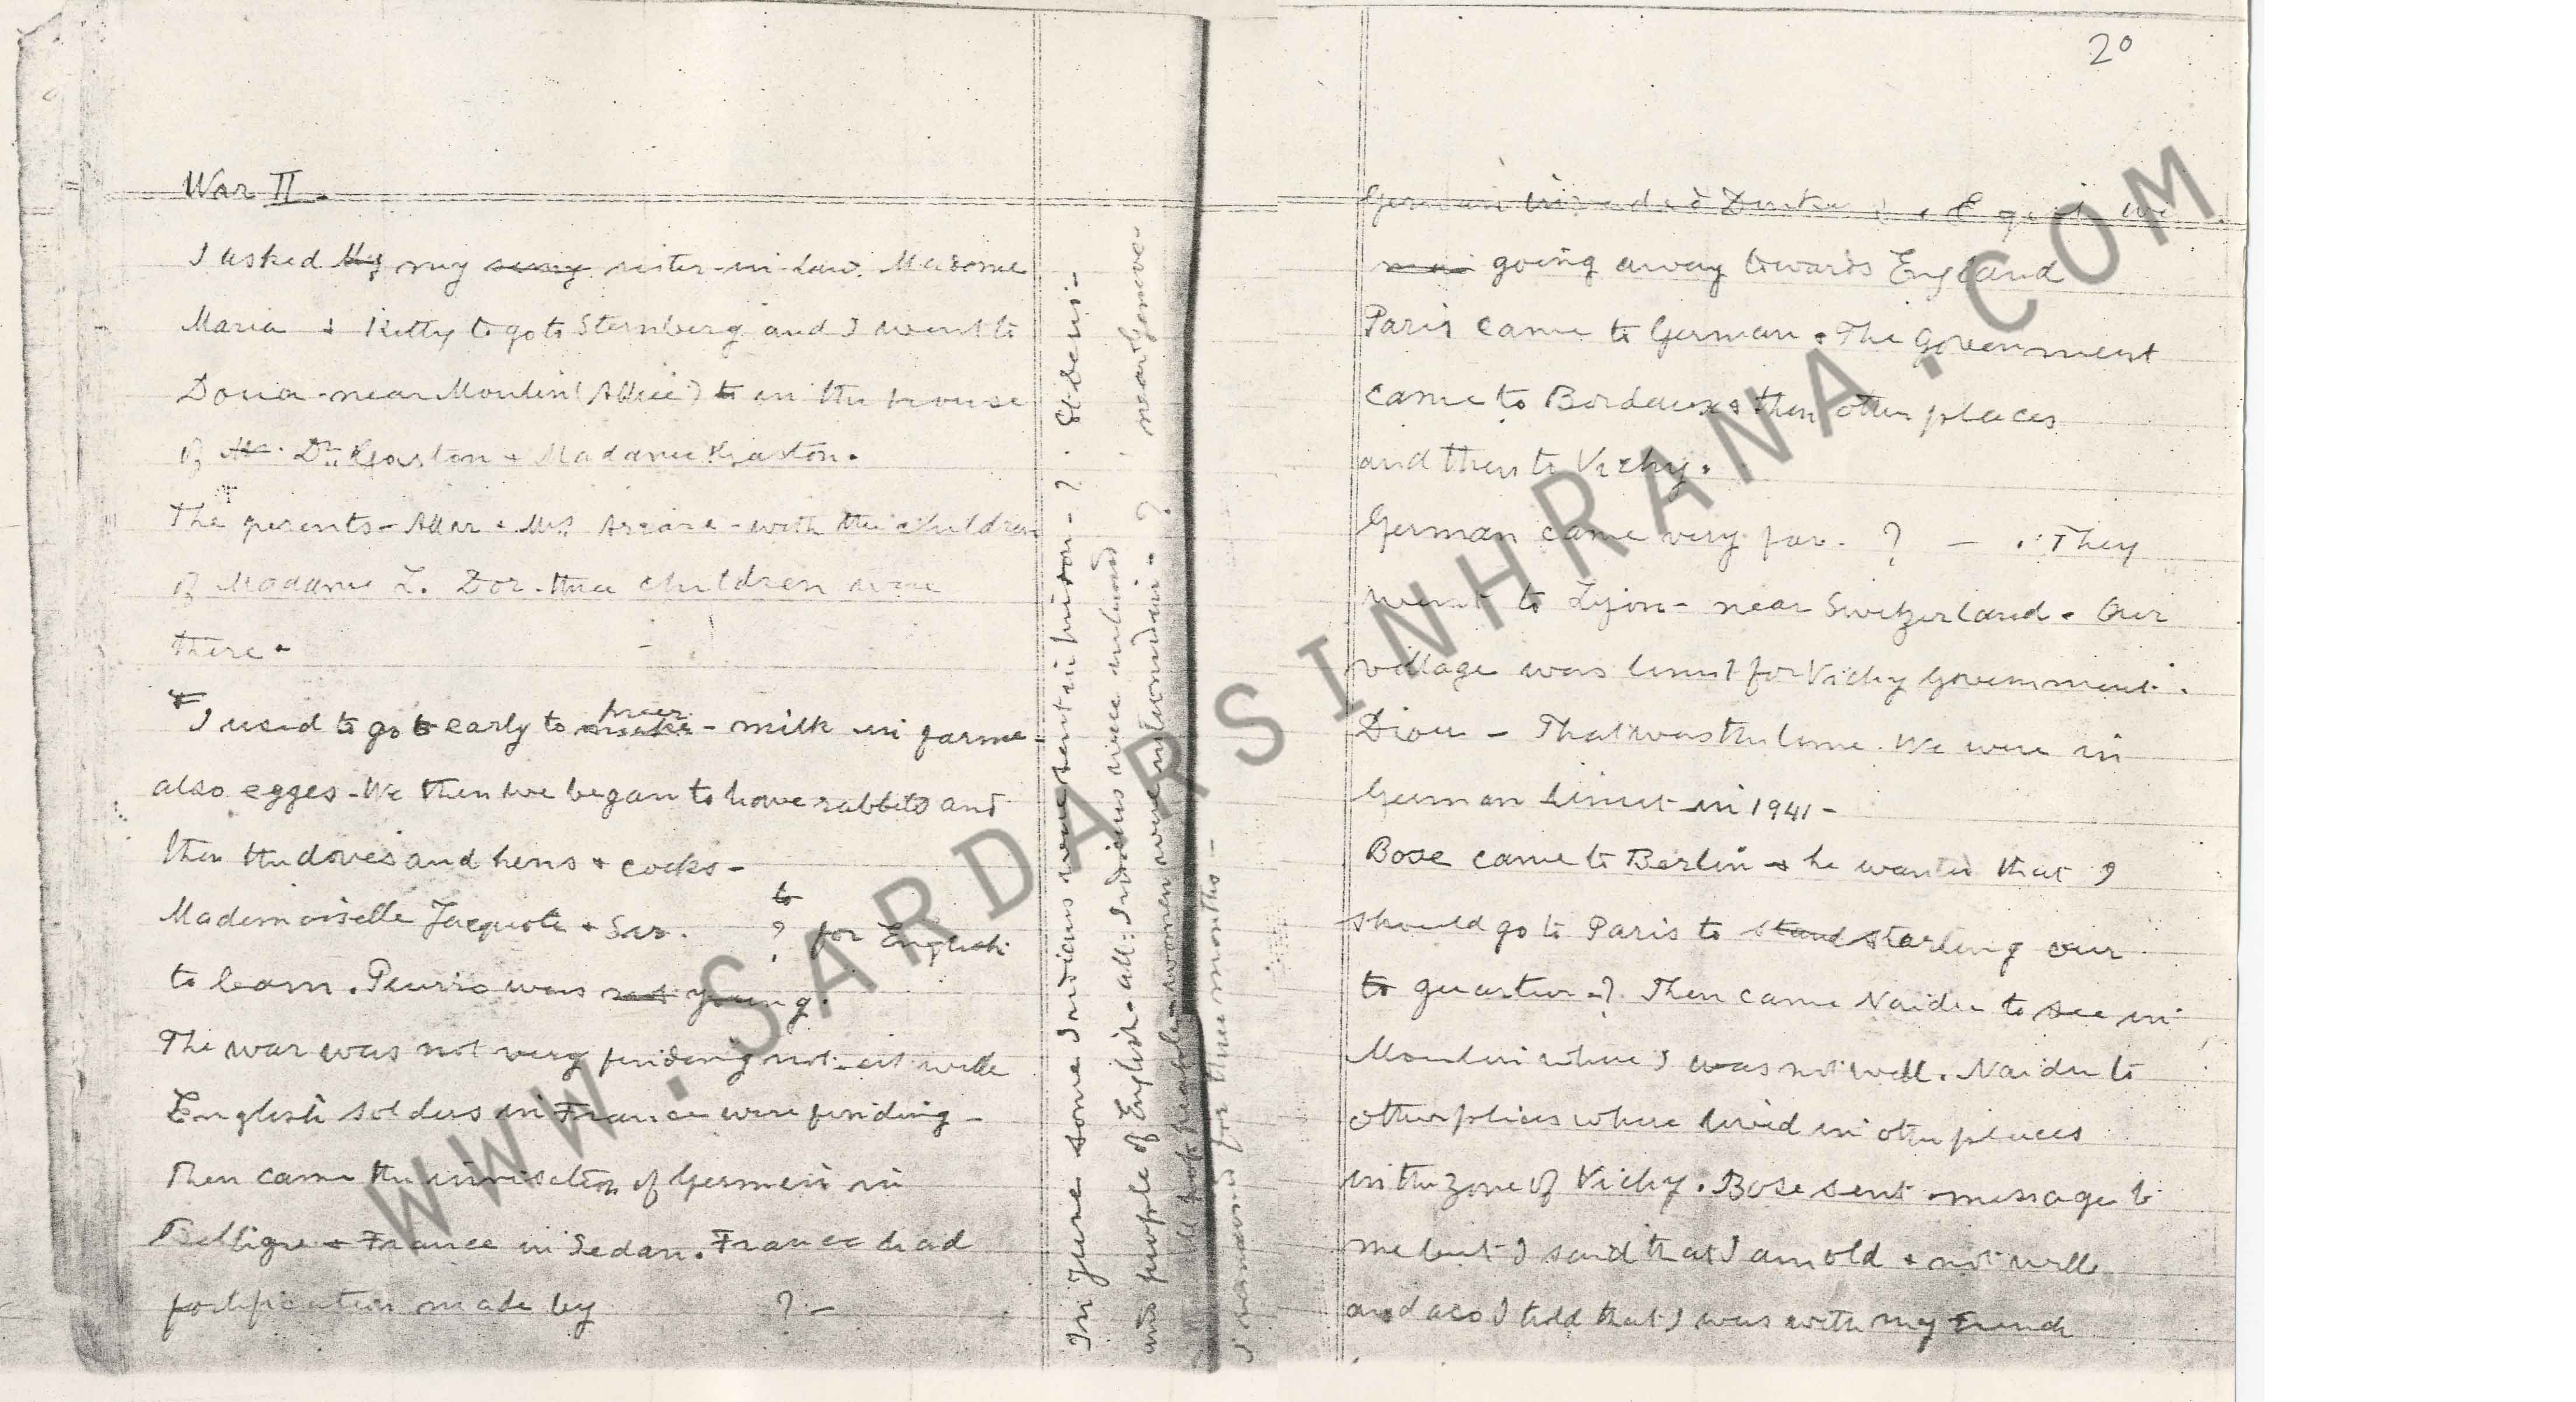 War II.
I asked my sister-in-law. Madame
Maria & Kitty to go to Sternberg and I went to
Diou - near Moulin (Allier) to in the house
of Dr. Gaston & Madame Gaston.
The parents - with the children
of Madame L. Dor. three children were
there.
I used to go to early to milk in farme -
also egges - We then we began to have rabbits and
then the doves and hens & cocks -
Mademoiselle Jacquote & Sar. ? for English
to learn. was not young.
The war was not very not
English in France were
Then came the of German in
Beligue & France in Sedan. France had
fortification made by ? -
In June some Indians were sent in prison - ? St. Denis -
and people of English - all: Indians were interned
women were interned in - ? near
I remained for three months -
20
German
going away towards England
Paris came to German. The Government
came to Bordeaux & then other places
and then to Vichy.
German came very far. ? - They
went to Lyon - near Switzerland. Our
village was limit for Vichy Government.
Diou - That was the line. We were in
German limit in 1941 -
Bose came to Berlin & he wanted that I
should go to Paris to stand starting our
to quarter - ? Then came Naidu to see in
Moulin where I was not well. Naidu to
other places where lived in other places
in the zone of Vichy. Bose sent message to
me but I said that I am old & not well
and I told that I was with my
WWW.SARDARSINHRANA.COM